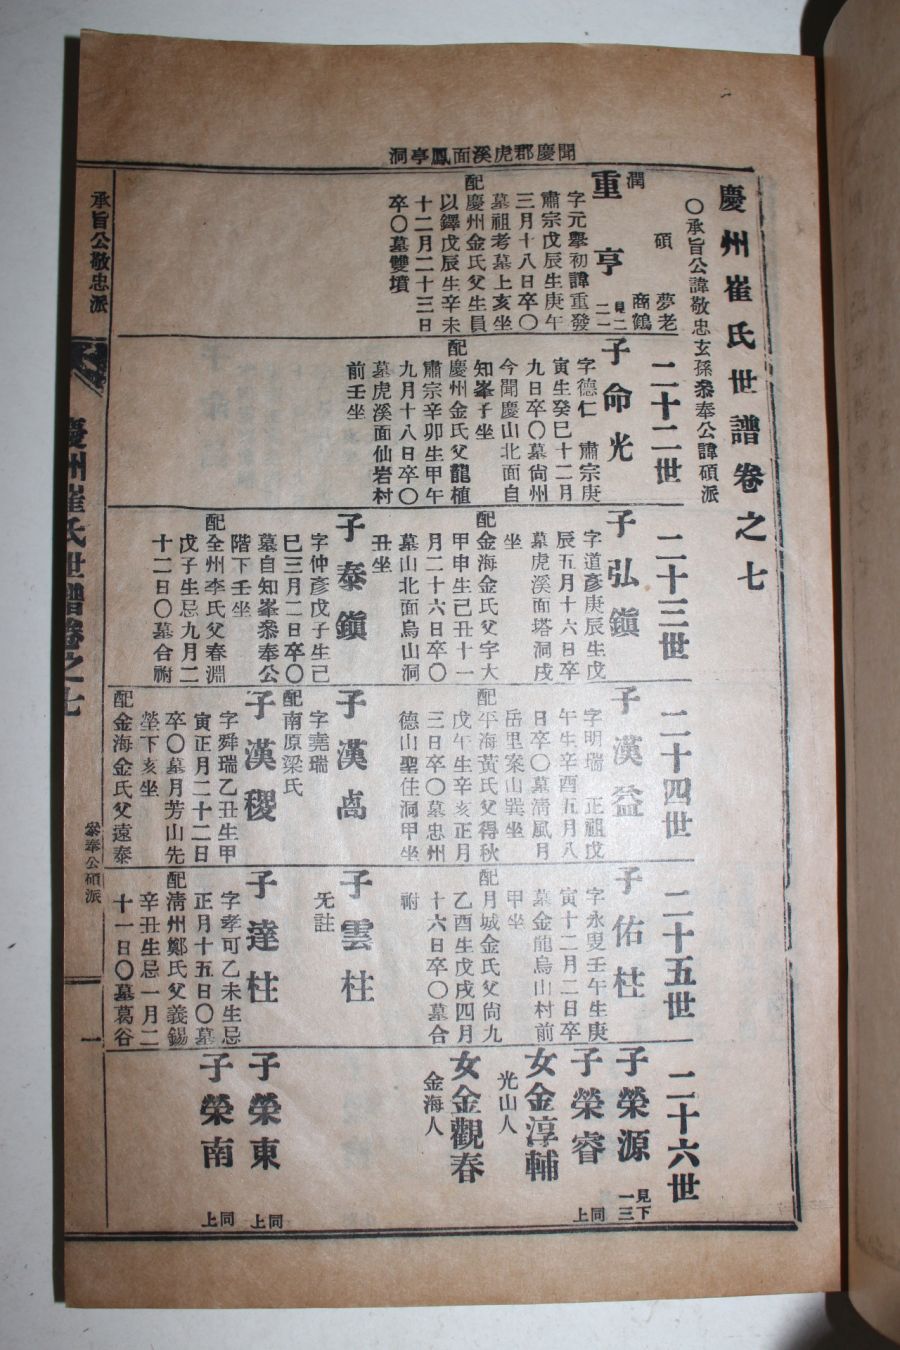 聞慶郡虎溪面鳳亭洞
慶州崔氏世譜卷之七
〇承旨公諱敬忠玄孫叅奉公諱碩派
潤
碩
夢老
商鶴
重亨
見二
二一
字元擧初諱重發
肅宗戊辰生庚午
三月十八日卒〇
墓祖考墓上亥坐
配慶州金氏父生員
以鐸戊辰生辛未
十二月二十三日
卒〇墓雙墳
二十二世
子命光
字德仁 肅宗庚
寅生癸巳十二月
九日卒〇墓尙州
今聞慶山北面自
知峯子坐
配慶州金氏父龍植
肅宗辛卯生甲午
九月十八日卒〇
墓虎溪面仙岩村
前壬坐
二十三世
子弘鎭
字道彥庚辰生戊
辰五月十六日卒
墓虎溪面塔洞戌
坐
配金海金氏父字大
甲申生己丑十一
月二十六日卒〇
墓山北面烏山洞
丑坐
子泰鎭
字仲彥戊子生己
巳三月二日卒〇
墓自知峯叅奉公
階下壬坐
配全州李氏父春淵
戊子生忌九月二
十二日〇墓合祔
二十四世
子漢益
字明瑞 正祖戊
午生辛酉五月八
日卒〇墓淸風月
岳里案山巽坐
配平海黃氏父得秋
戊午生辛亥正月
三日卒〇墓忠州
德山聖住洞甲坐
子漢卨
字堯瑞
配南原梁氏
子漢稷
字舜瑞乙丑生甲
寅正月二十二日
卒〇墓月芳山先
塋下亥坐
配金海金氏父遠泰
二十五世
子佑柱
字永叟壬午生庚
寅十二月二日卒
墓金龍烏山村前
甲坐
配月城金氏父尙九
乙酉生戊戌四月
十六日卒〇墓合
祔
子雲柱
无註
子達柱
字孝可乙未生忌
正月十五日〇墓
配淸州鄭氏父義錫
辛丑生忌一月二
十一日〇墓葛谷
二十六世
子榮源
見下
一三
子榮睿
同上
女金淳輔
光山人
女金觀春
金海人
子榮東
同上
子榮南
同上
承旨公敬忠派
慶州崔氏世譜卷之七
叅奉公碩派
一